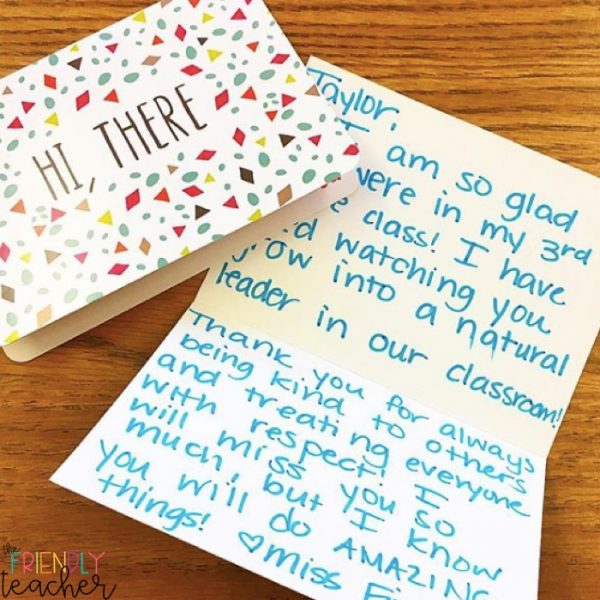 HI, THERE
Taylor,
I am so glad
were in my 3rd
class! I have
watching you
grow into a natural
leader in our classroom!
Thank you for always
being kind to others
and treating everyone
with respect! I
will miss you so
much, but I know
you will do AMAZING
things!
♡miss
the
FRIENDLY
teacher